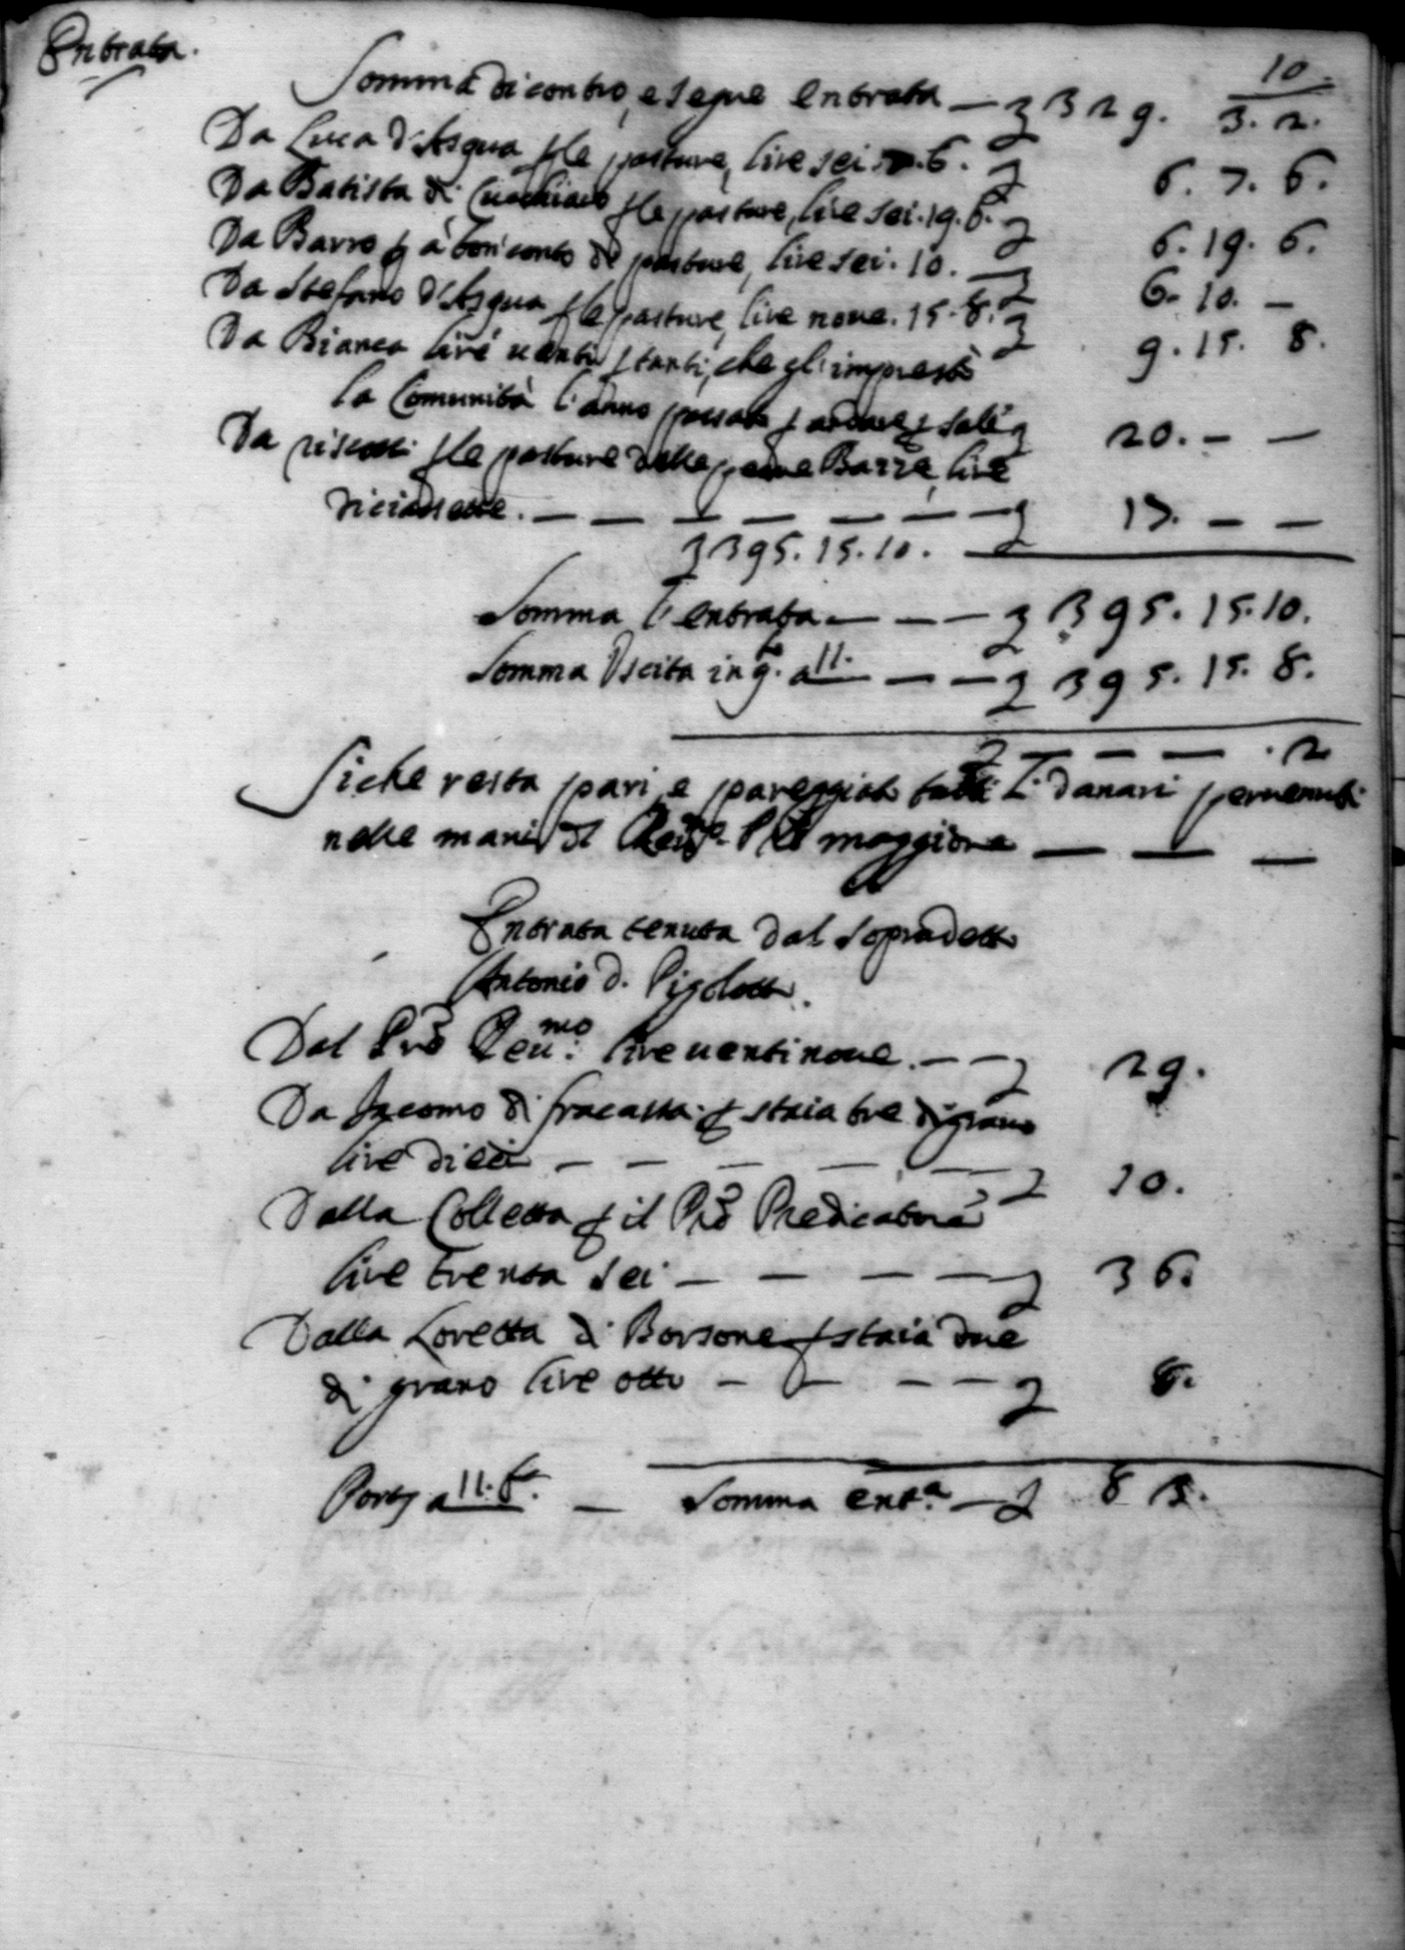 Entrata.
10
Somma di contro, e segue entrata — £ 329. 3. 2.
Da Luca d'Asqua p le pasture, lire sei. 7. 6. £ 6. 7. 6.
Da Batista di p le pasture, lire sei. 19. 6. £ 6. 19. 6.
Da Barro p à bon conto di pasture, lire sei. 10. — £ 6. 10. —
Da Stefano d'Asqua p le pasture, lire noue. 15. 8. £ 9. 15. 8.
Da Bianco lire uenti p tanti, che gli imprestò
la Comunità l'anno passato p andare p sale £ 20. — —
Da riscossi p le pasture delle Barze, lire
diciassette. — — — — — — £ 17. — —
£ 395. 15. 10.
Somma l'entrata — — — £ 395. 15. 10.
Somma Uscita in q.to a 11. — — — £ 395. 15. 8.
£ — — — . 2
Siche resta pari, e pareggiato tutti li danari peruenuti
nelle mani di maggiore — — —
Entrata tenuta dal sopradetto
Antonio d. Pigolotti.
Dal Prõ Reu.mo: lire uentinoue. — — £ 29.
Da Jacomo di fracassa p staia tre di grano
lire dieci — — — — — £ 10.
Dalla Colletta p il Prõ Predicatore
lire trenta sei — — — — £ 36.
Dalla Loretta di Borsone p staia due
di grano lire otto — — — — £ 8.
Porto a 11. t. — Somma ent.a — £ 83.